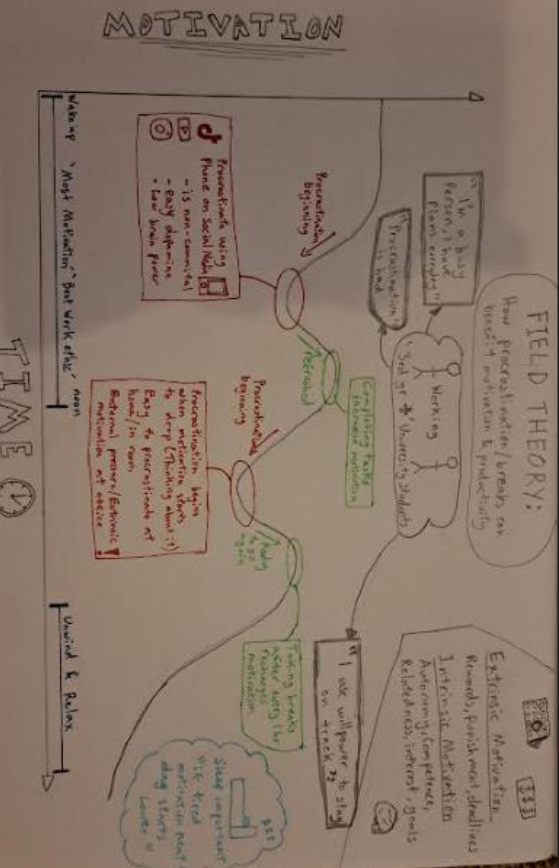 FIELD THEORY:
How procrastination/breaks can
benefit motivation & productivity
Extrinsic Motivation
Rewards, punishment, deadlines
Intrinsic Motivation
Autonomy, competence,
Relatedness, interest, goals
$$$
"I'm a busy
Person, I have
Plans everyday"
"Procrastination
is bad"
Working
3rd yr University Students
"I use willpower to stay
on track"
MOTIVATION
Procrastination
beginning
Procrastinate using
Phone on Social Media
- is non-commital
- easy dopamine
- Low brain power
refreshed
Completing tasks
increases motivation
Procrastination
beginning
Procrastination begins
when motivation starts
to drop (Thinking about it)
Easy to procrastinate at
home/in room
External pressure/Extrinsic
motivation at office
Ready
to go
again
Taking breaks
after every 1hr
recharges
motivation
Sleep important
if tired
motivation next
day starts
Lower
Wake up
"Most Motivation" "Best Work ethic"
noon
Unwind & Relax
TIME